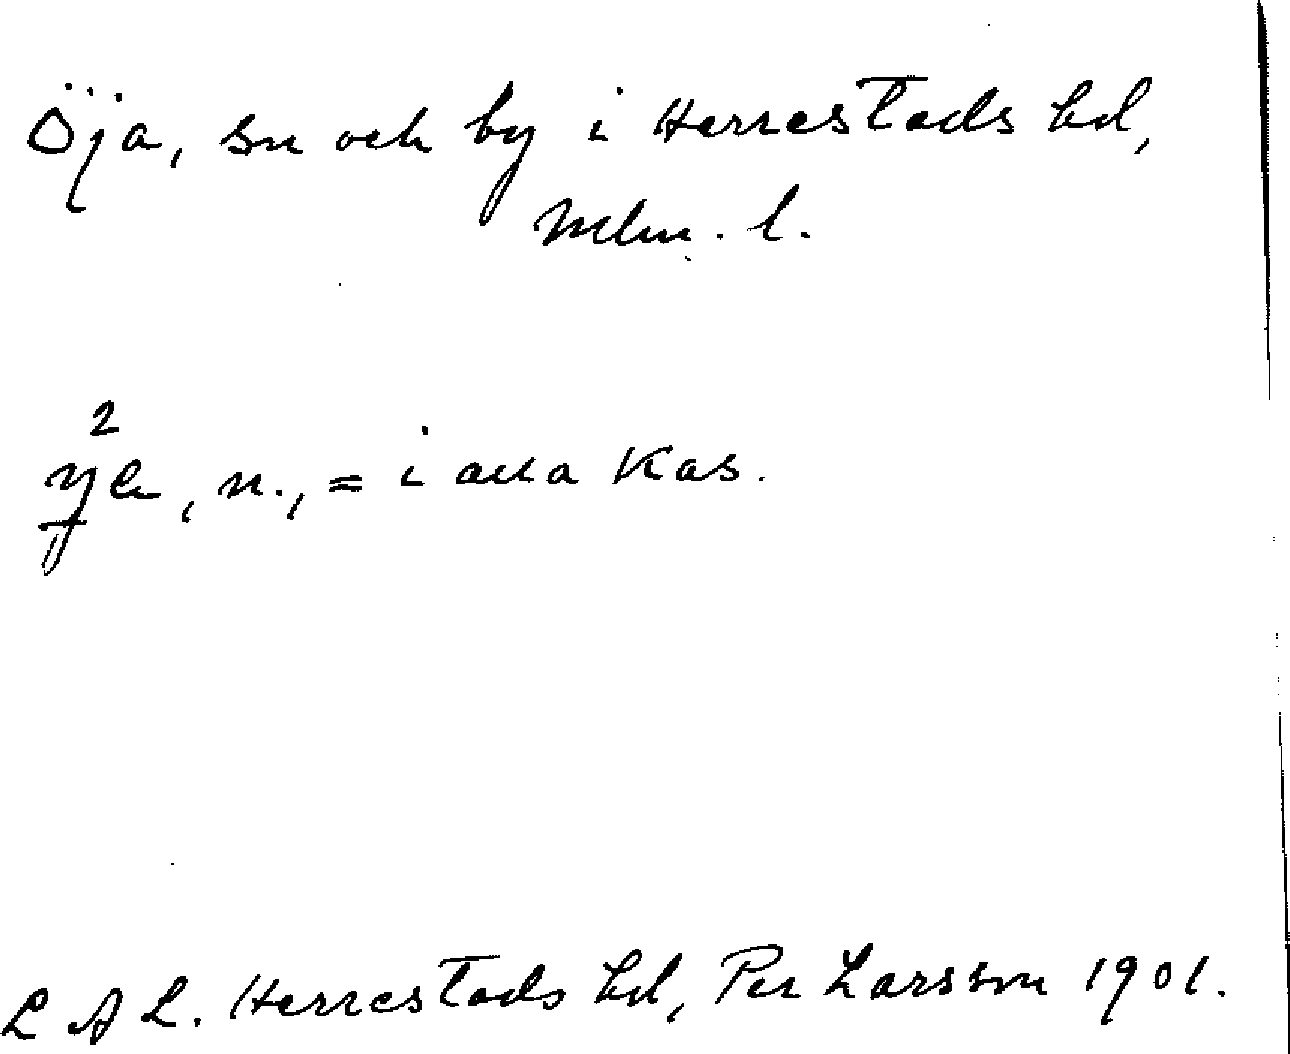 Öja, sn och by i Herrestads hd,
Mlm. l.
n., = i alla kas.
L A L. Herrestads hd, Per Larsson 1901.